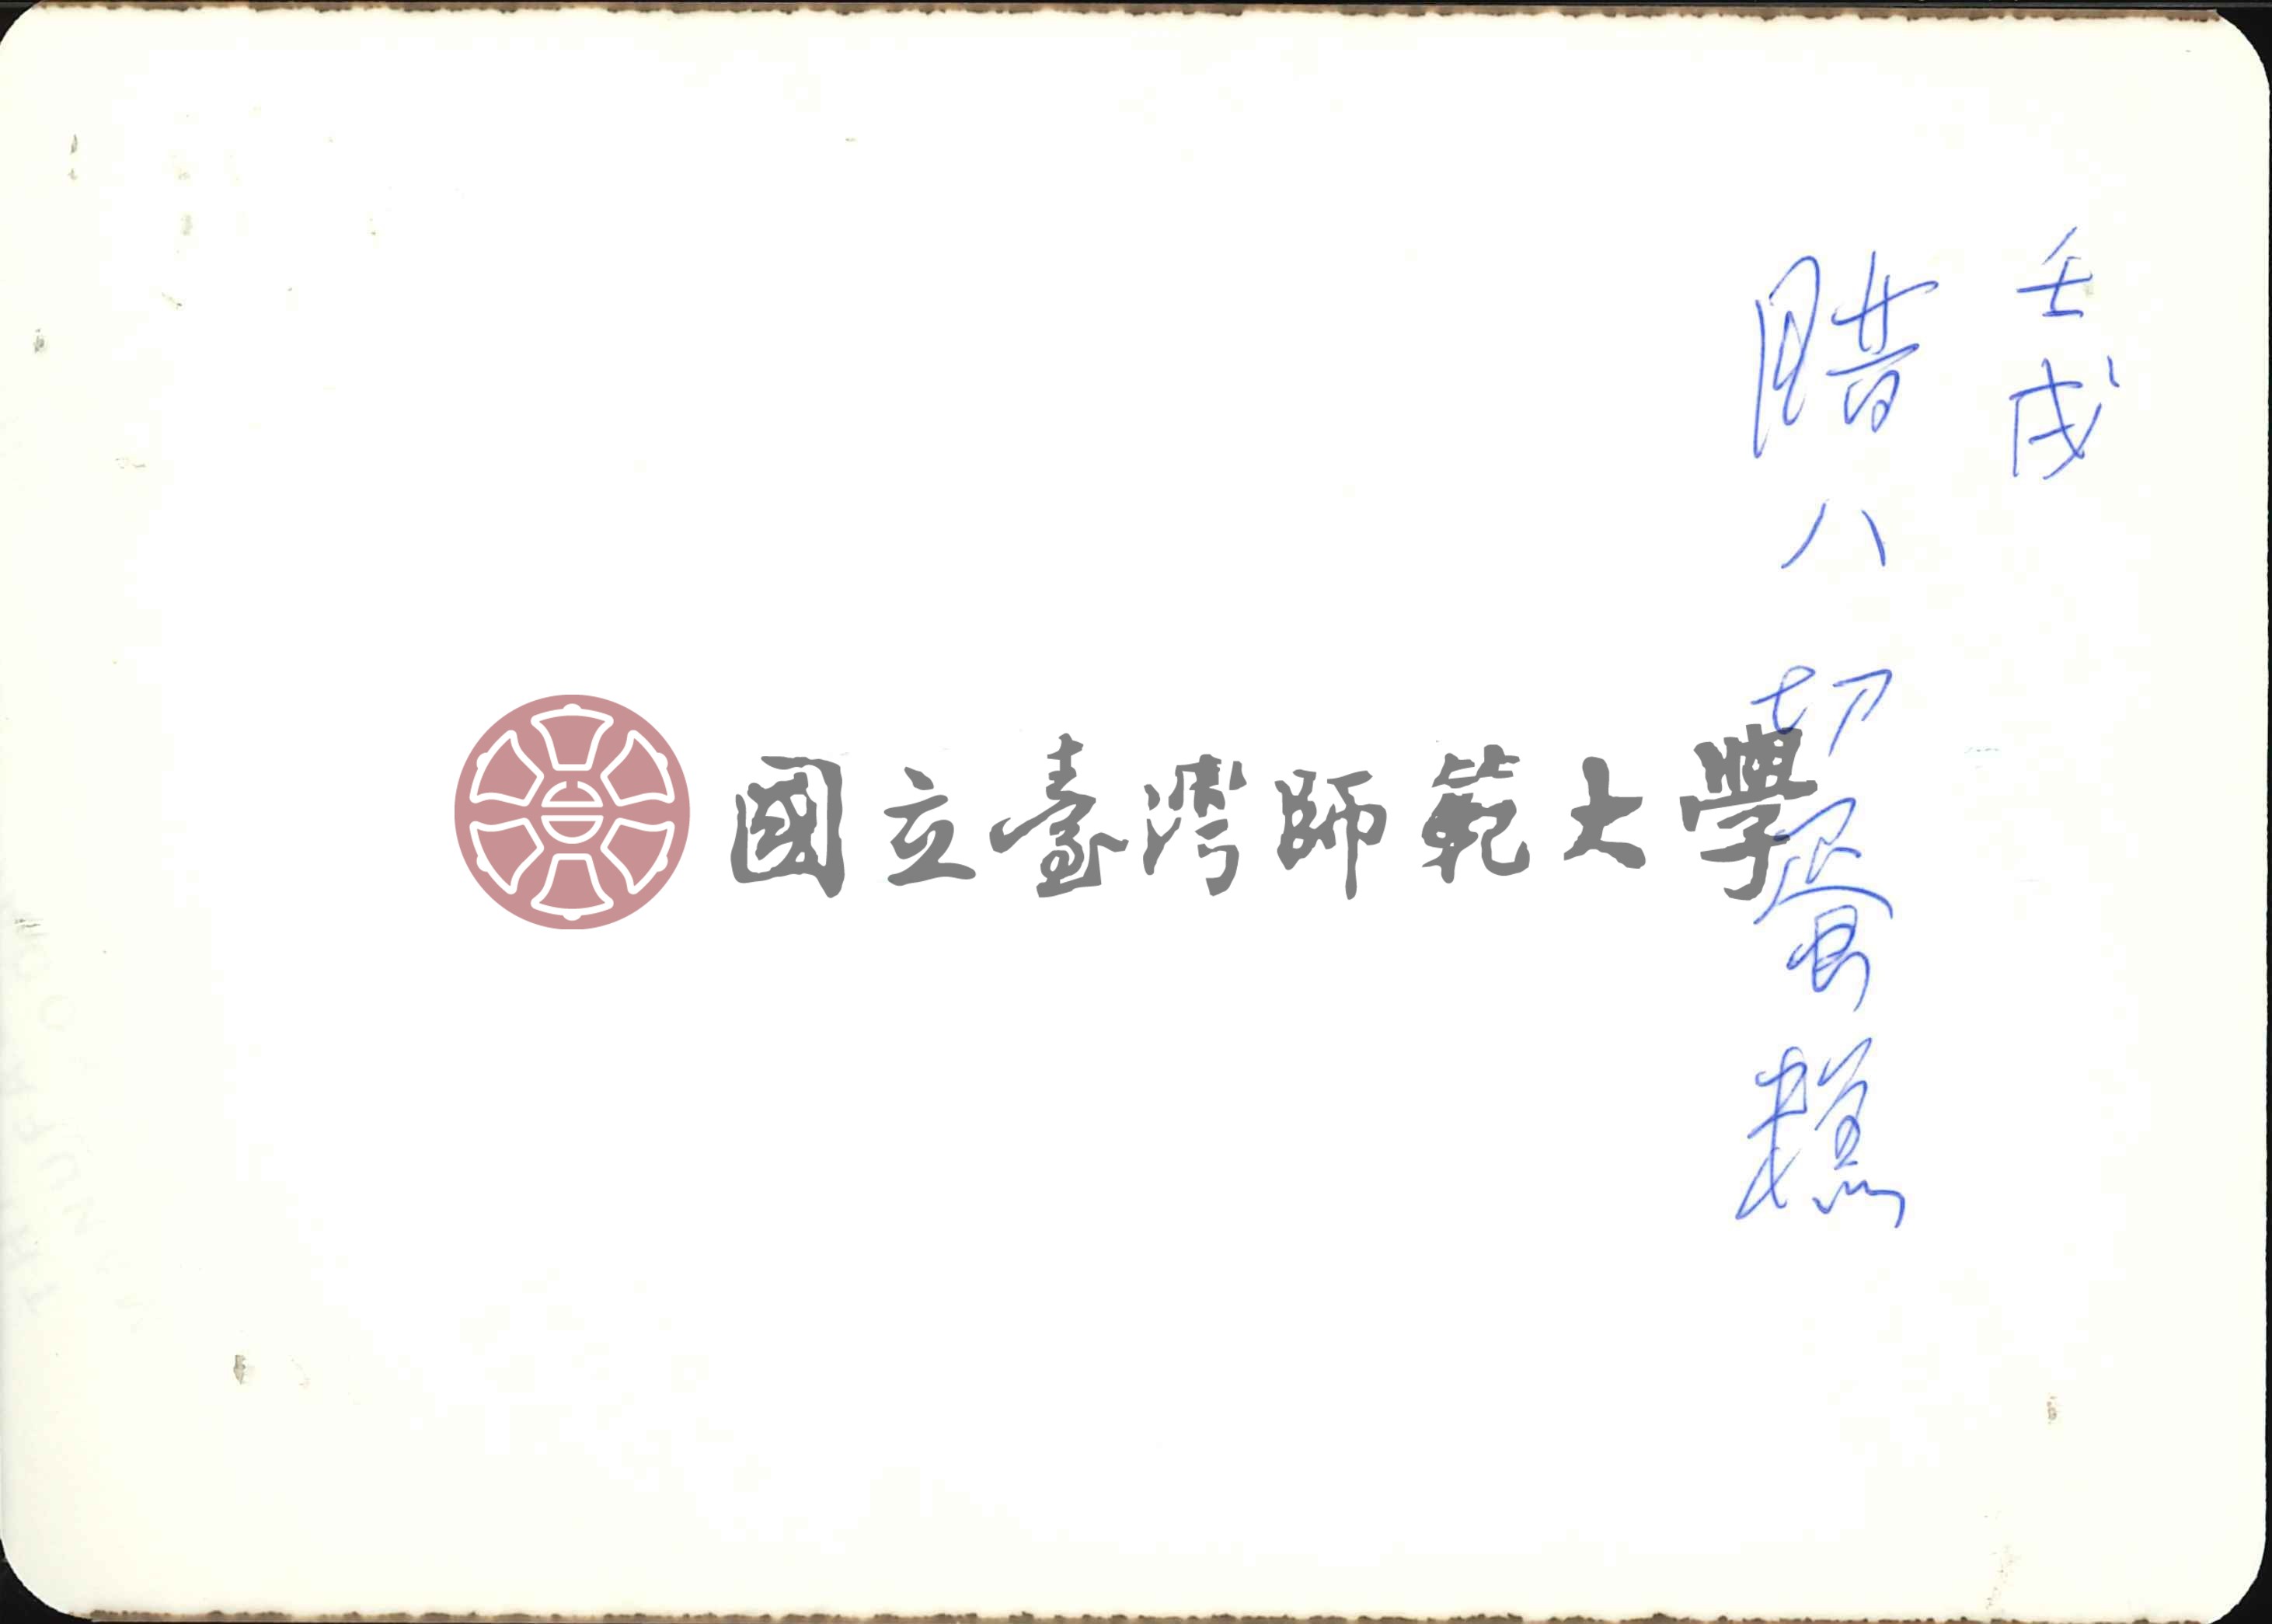 壬戌
腊八 切蛋糕
國立臺灣師範大學